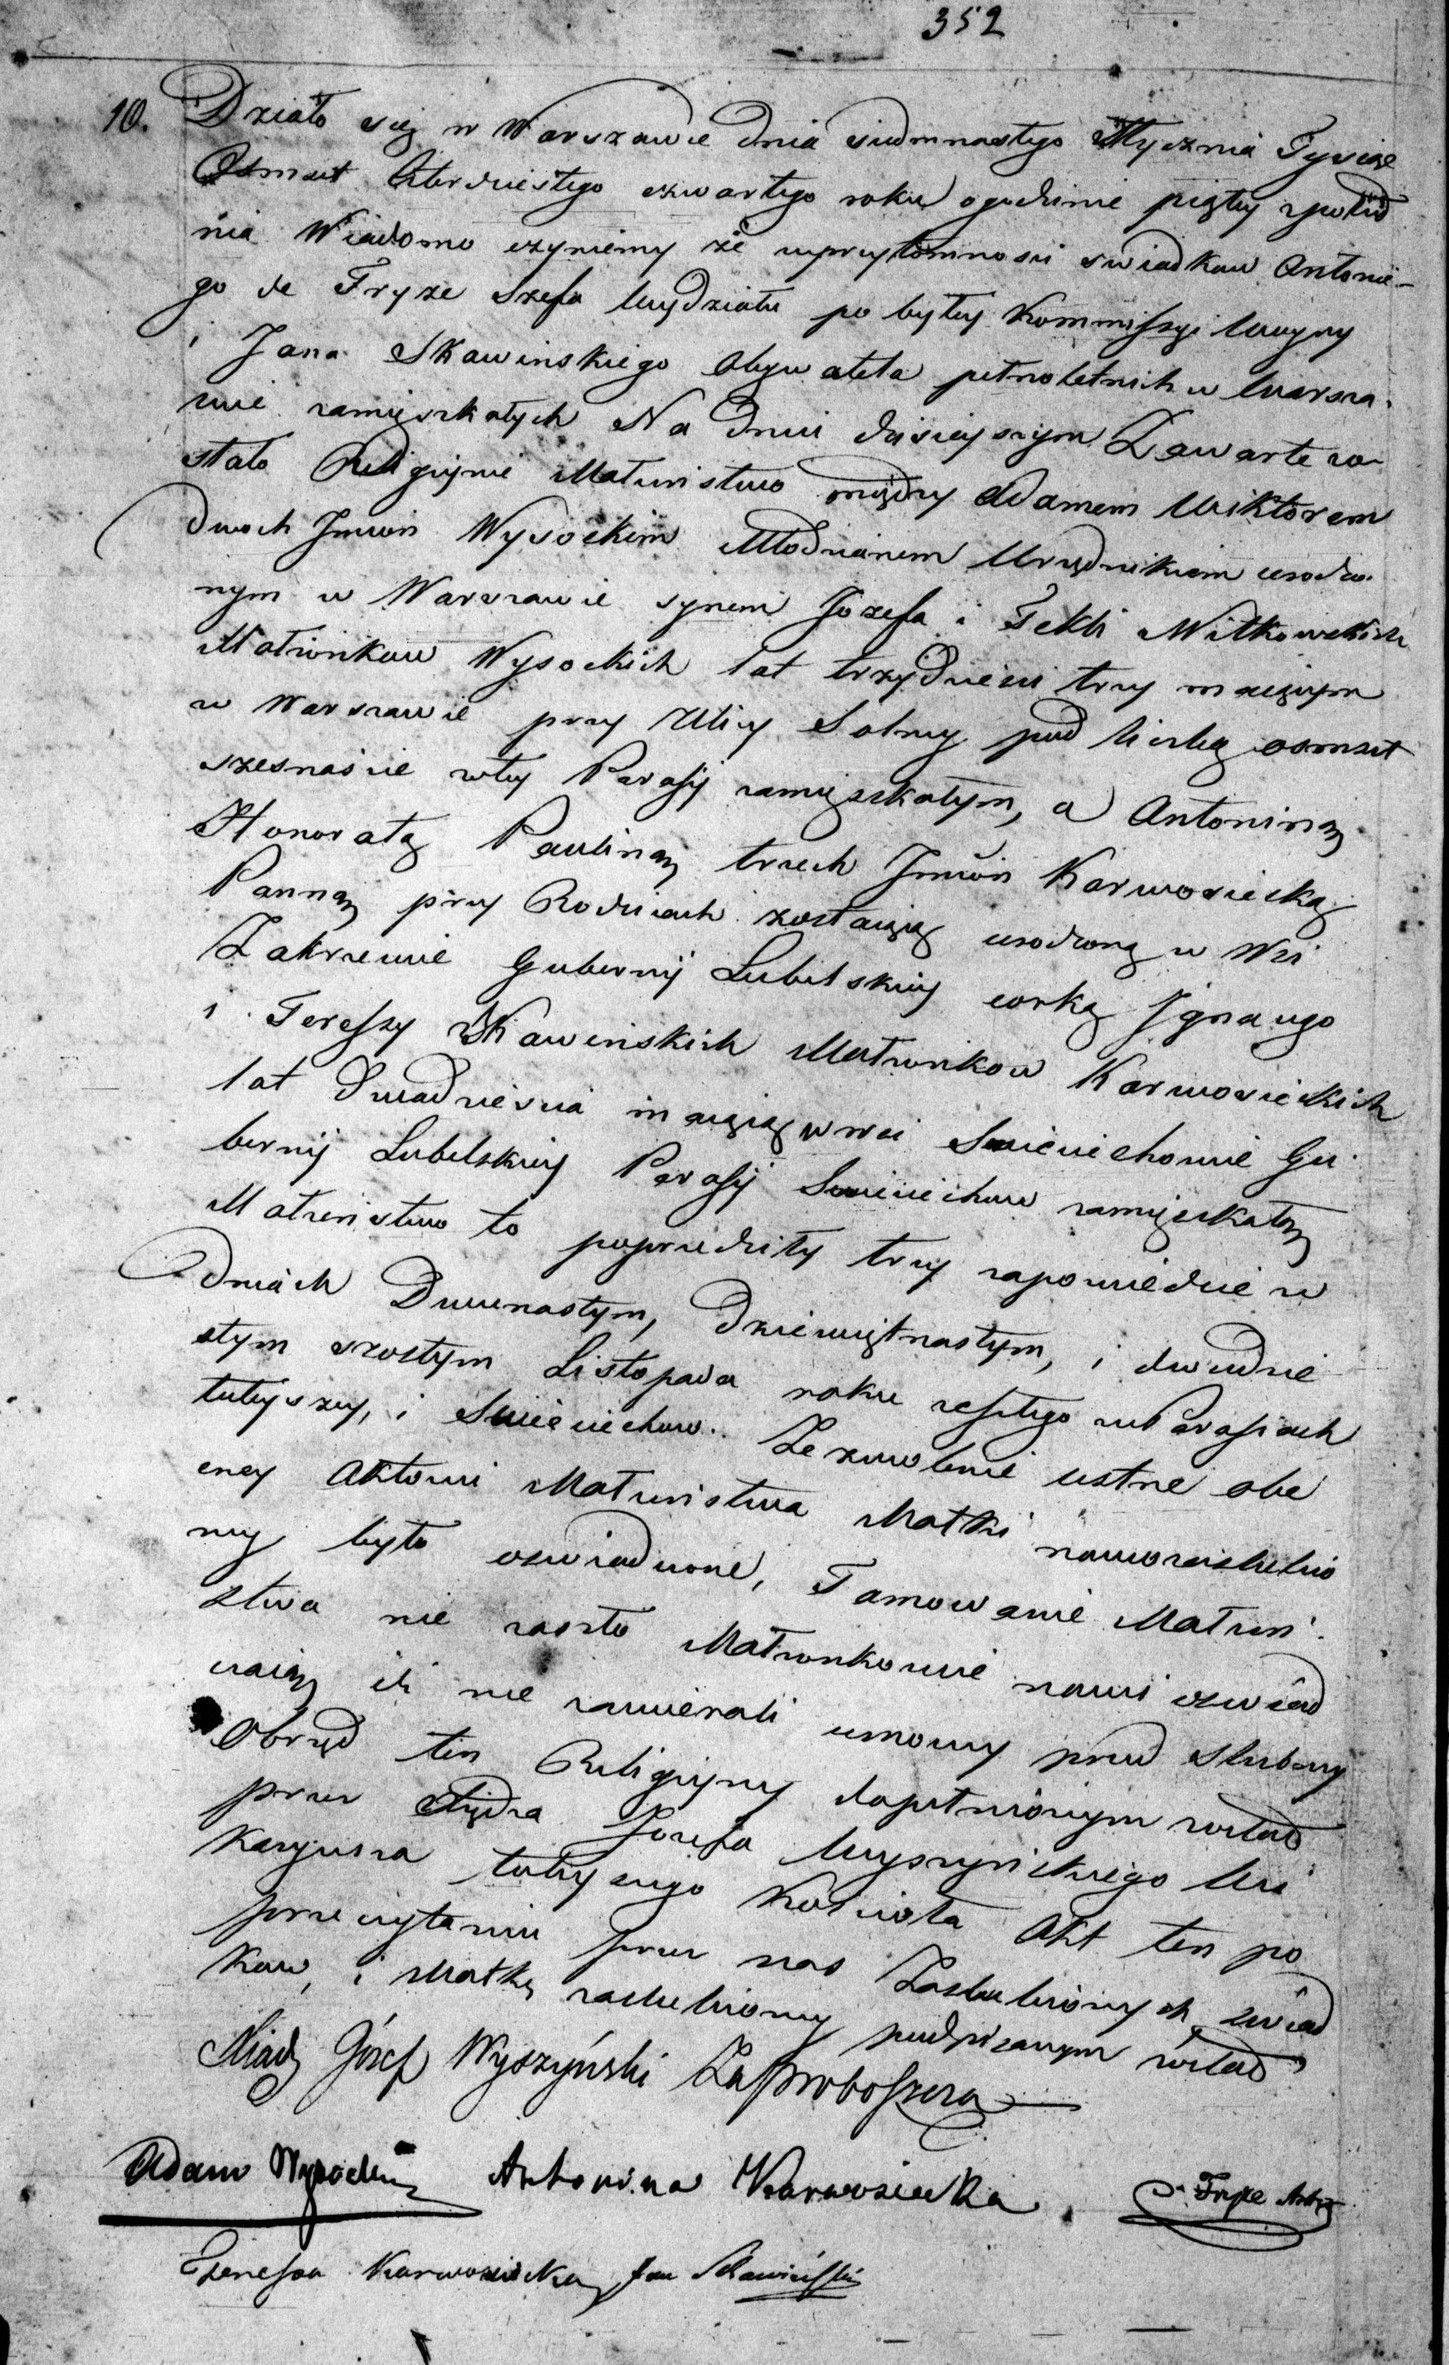 352
10. Działo się w Warszawie dnia siedmnastego Stycznia Tysiąc
Osmset Czterdziestego czwartego roku o godzinie piątey z połud
nia Wiadomo czyniemy że w przytomności swiadkow Antonie-
go de Fryze Szefa Wydziału po byłey Kommissyi Woyny
i Jana Skawinskiego Obywatela pełnoletnich w Warsza-
wie zamięszkałych Na dniu dzisieyszym Zawarte zo-
stało Religijne Małżenstwo między Adamem Wiktorem
dwoch Jmion Wysockim Młodzianem Urzędnikiem urodzo-
nym w Warszawie synem Jozefa i Tekli Witkowskich
Małżonkow Wysockich lat trzydzieści trzy maiącym
w Warszawie przy Ulicy Solney pod liczbą osmset
szesnaście w tey Parafij zamięszkałym, a Antoniną
Honoratą Pauliną trzech Jmion Karwosiecką
Panną przy Rodzicach zostaiącą urodzoną w Wsi
Zakrzewie Gubernij Lubelskiey corką Jgnacego
i Teressy Skawinskich Małżonkow Karwosieckich
lat dwadzieścia maiącą w wsi Swieciechowie Gu-
bernij Lubelskiey Parafij Swieciechow zamięszkałą
Małżenstwo to poprzedziły trzy zapowiedzie w
dniach Dwunastym, dziewiętnastym, i dwudzie
stym szostym Listopada roku zeszłego w Parafiach
tuteyszey, i Swieciechow. Zezwolenie ustne obe
cney Aktowi Małżenstwa Matki nowozaslubio
ney było oswiadczone, Tamowanie Małżen-
stwa nie zaszło Małżonkowie nowi oswiad
czaią iż nie zawierali umowy przed slubney
Obrząd ten Religijny dopełnionym został
przez Xiędza Jozefa Wyszynskiego Wi
karyusza tuteyszego Kościoła Akt ten po
przeczytaniu przez nas Zaslubionych, swiad
kow, i Matkę zaslubioney podpisanym został
Xiądz Józef Wyszyński Za Proboszcza
Adam Wysocki Antonina Karwosiecka Fryze Ant
Teressa Karwosiecka Jan Skawiński